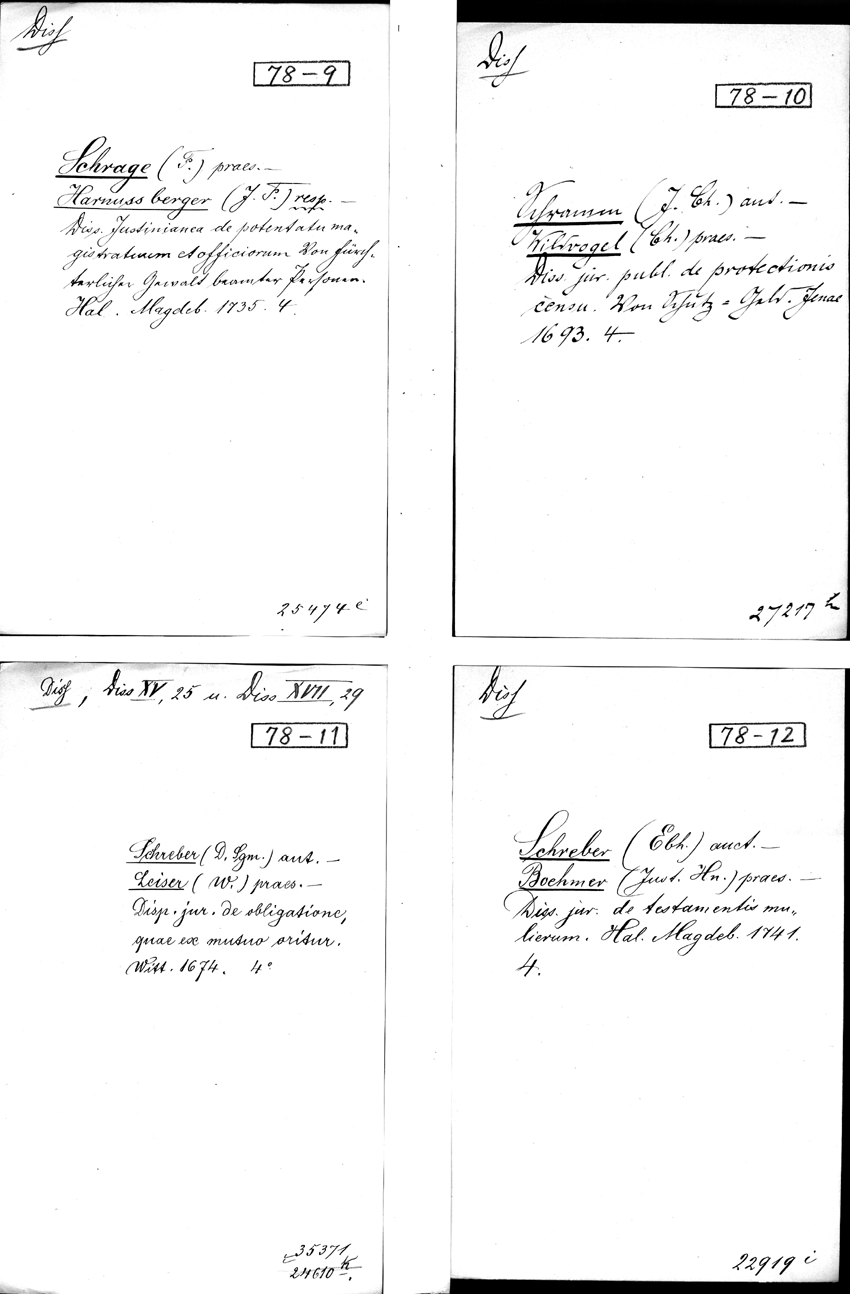 Diss
78-9
Schrage (F.) praes. —
Harnussberger (J. F.) resp. —
Diss. Justinianea de potentatu ma-
gistratuum et officiorum Von fürch-
terlicher Gewalt beamter Personen.
Hal. Magdeb. 1735. 4.
25474 i
Diss
78-10
Schramm (J. Ch.) aut. —
Wildvogel (Ch.) praes. —
Diss. jur. publ. de protectionis
censu. Von Schutz-Geld. Jenae
1693. 4.
27217
Diss, Diss XV, 25 u. Diss XVII, 29
78-11
Schreber (D. Sgm.) aut. —
Leiser (W.) praes. —
Disp. jur. de obligatione,
quae ex mutuo oritur.
Witt. 1674. 4°
35371
24610 k.
Diss
78-12
Schreber (Ebh.) auct. —
Boehmer (Just. Hn.) praes. —
Diss. jur. de testamentis mu-
lierum. Hal. Magdeb. 1741.
4.
22919 i